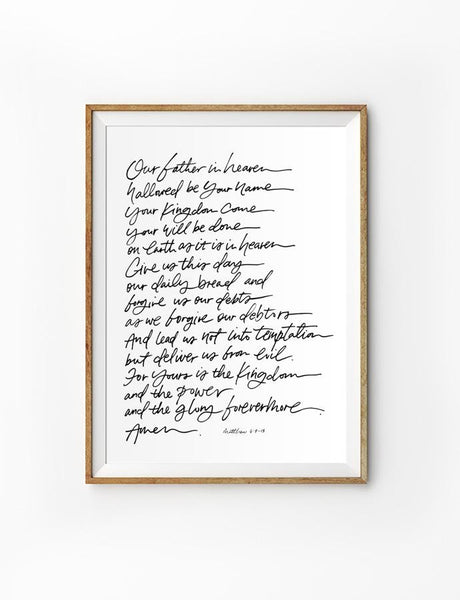 Our father in heaven
hallowed be your name
your Kingdom come
your will be done
on earth as it is in heaven
Give us this day
our daily bread and
forgive us our debts
as we forgive our debtors
And lead us not into temptation
but deliver us from evil.
For yours is the Kingdom
and the power
and the glory forevermore.
Amen.
Matthew 6:9-13